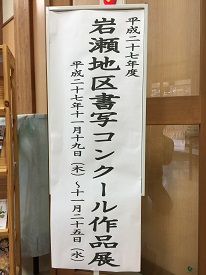 平成二十七年度
岩瀬地区書写コンクール作品展
平成二十七年十一月十九日(木)~十一月二十五日(水)